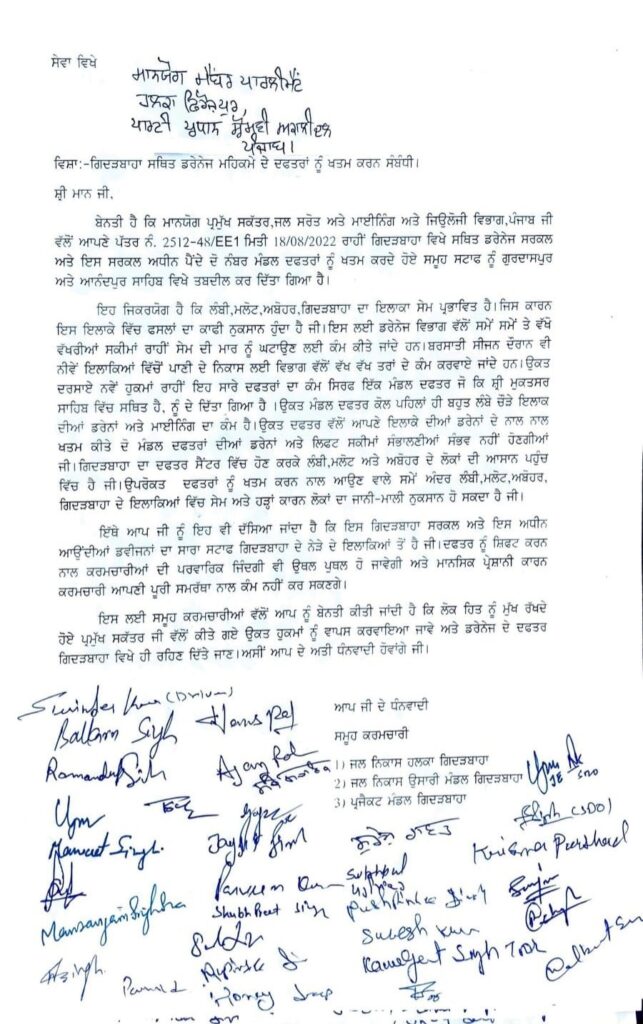 ਸੇਵਾ ਵਿਖੇ
ਮਾਨਯੋਗ ਮੈਂਬਰ ਪਾਰਲੀਮੈਂਟ
ਹਲਕਾ ਫਿਰੋਜ਼ਪੁਰ,
ਪਾਰਟੀ ਪ੍ਰਧਾਨ ਸ਼੍ਰੋਮਣੀ ਅਕਾਲੀਦਲ
ਪੰਜਾਬ।
ਵਿਸ਼ਾ:-ਗਿਦੜਬਾਹਾ ਸਥਿਤ ਡਰੇਨੇਜ ਮਹਿਕਮੇ ਦੇ ਦਫਤਰਾਂ ਨੂੰ ਖਤਮ ਕਰਨ ਸੰਬੰਧੀ।
ਸ਼੍ਰੀ ਮਾਨ ਜੀ,
ਬੇਨਤੀ ਹੈ ਕਿ ਮਾਨਯੋਗ ਪ੍ਰਮੁੱਖ ਸਕੱਤਰ,ਜਲ ਸਰੋਤ ਅਤੇ ਮਾਈਨਿੰਗ ਅਤੇ ਜਿਉਲੋਜੀ ਵਿਭਾਗ,ਪੰਜਾਬ ਜੀ
ਵੱਲੋਂ ਆਪਣੇ ਪੱਤਰ ਨੰ. 2512-48/EE1 ਮਿਤੀ 18/08/2022 ਰਾਹੀਂ ਗਿਦੜਬਾਹਾ ਵਿਖੇ ਸਥਿਤ ਡਰੇਨੇਜ ਸਰਕਲ
ਅਤੇ ਇਸ ਸਰਕਲ ਅਧੀਨ ਪੈਂਦੇ ਦੋ ਨੰਬਰ ਮੰਡਲ ਦਫਤਰਾਂ ਨੂੰ ਖਤਮ ਕਰਦੇ ਹੋਏ ਸਮੂਹ ਸਟਾਫ ਨੂੰ ਗੁਰਦਾਸਪੁਰ
ਅਤੇ ਆਨੰਦਪੁਰ ਸਾਹਿਬ ਵਿਖੇ ਤਬਦੀਲ ਕਰ ਦਿੱਤਾ ਗਿਆ ਹੈ।
ਇਹ ਜਿਕਰਯੋਗ ਹੈ ਕਿ ਲੰਬੀ,ਮਲੋਟ,ਅਬੋਹਰ,ਗਿਦੜਬਾਹਾ ਦਾ ਇਲਾਕਾ ਸੇਮ ਪ੍ਰਭਾਵਿਤ ਹੈ।ਜਿਸ ਕਾਰਨ
ਇਸ ਇਲਾਕੇ ਵਿੱਚ ਫਸਲਾਂ ਦਾ ਕਾਫੀ ਨੁਕਸਾਨ ਹੁੰਦਾ ਹੈ ਜੀ।ਇਸ ਲਈ ਡਰੇਨੇਜ ਵਿਭਾਗ ਵੱਲੋਂ ਸਮੇਂ ਸਮੇਂ ਤੇ ਵੱਖੋ
ਵੱਖਰੀਆਂ ਸਕੀਮਾਂ ਰਾਹੀਂ ਸੇਮ ਦੀ ਮਾਰ ਨੂੰ ਘਟਾਉਣ ਲਈ ਕੰਮ ਕੀਤੇ ਜਾਂਦੇ ਹਨ।ਬਰਸਾਤੀ ਸੀਜਨ ਦੌਰਾਨ ਵੀ
ਨੀਵੇਂ ਇਲਾਕਿਆਂ ਵਿੱਚੋਂ ਪਾਣੀ ਦੇ ਨਿਕਾਸ ਲਈ ਵਿਭਾਗ ਵੱਲੋਂ ਵੱਖ ਵੱਖ ਤਰਾਂ ਦੇ ਕੰਮ ਕਰਵਾਏ ਜਾਂਦੇ ਹਨ।ਉਕਤ
ਦਰਸਾਏ ਨਵੇਂ ਹੁਕਮਾਂ ਰਾਹੀਂ ਇਹ ਸਾਰੇ ਦਫਤਰਾਂ ਦਾ ਕੰਮ ਸਿਰਫ ਇੱਕ ਮੰਡਲ ਦਫਤਰ ਜੋ ਕਿ ਸ਼੍ਰੀ ਮੁਕਤਸਰ
ਸਾਹਿਬ ਵਿੱਚ ਸਥਿਤ ਹੈ, ਨੂੰ ਦੇ ਦਿੱਤਾ ਗਿਆ ਹੈ ।ਉਕਤ ਮੰਡਲ ਦਫਤਰ ਕੋਲ ਪਹਿਲਾਂ ਹੀ ਬਹੁਤ ਲੰਬੇ ਚੌੜੇ ਇਲਾਕ
ਦੀਆਂ ਡਰੇਨਾਂ ਅਤੇ ਮਾਈਨਿੰਗ ਦਾ ਕੰਮ ਹੈ।ਉਕਤ ਦਫਤਰ ਵੱਲੋਂ ਆਪਣੇ ਇਲਾਕੇ ਦੀਆਂ ਡਰੇਨਾਂ ਦੇ ਨਾਲ ਨਾਲ
ਖਤਮ ਕੀਤੇ ਦੋ ਮੰਡਲ ਦਫਤਰਾਂ ਦੀਆਂ ਡਰੇਨਾਂ ਅਤੇ ਲਿਫਟ ਸਕੀਮਾਂ ਸੰਭਾਲਣੀਆਂ ਸੰਭਵ ਨਹੀਂ ਹੋਣਗੀਆਂ
ਜੀ।ਗਿਦੜਬਾਹਾ ਦਾ ਦਫਤਰ ਸੈਂਟਰ ਵਿੱਚ ਹੋਣ ਕਰਕੇ ਲੰਬੀ,ਮਲੋਟ ਅਤੇ ਅਬੋਹਰ ਦੇ ਲੋਕਾਂ ਦੀ ਆਸਾਨ ਪਹੁੰਚ
ਵਿੱਚ ਹੈ ਜੀ।ਉਪਰੋਕਤ ਦਫਤਰਾਂ ਨੂੰ ਖਤਮ ਕਰਨ ਨਾਲ ਆਉਣ ਵਾਲੇ ਸਮੇਂ ਅੰਦਰ ਲੰਬੀ,ਮਲੋਟ,ਅਬੋਹਰ,
ਗਿਦੜਬਾਹਾ ਦੇ ਇਲਾਕਿਆਂ ਵਿੱਚ ਸੇਮ ਅਤੇ ਹੜ੍ਹਾਂ ਕਾਰਨ ਲੋਕਾਂ ਦਾ ਜਾਨੀ-ਮਾਲੀ ਨੁਕਸਾਨ ਹੋ ਸਕਦਾ ਹੈ ਜੀ।
ਇੱਥੇ ਆਪ ਜੀ ਨੂੰ ਇਹ ਵੀ ਦੱਸਿਆ ਜਾਂਦਾ ਹੈ ਕਿ ਇਸ ਗਿਦੜਬਾਹਾ ਸਰਕਲ ਅਤੇ ਇਸ ਅਧੀਨ
ਆਉਂਦੀਆਂ ਡਵੀਜਨਾਂ ਦਾ ਸਾਰਾ ਸਟਾਫ ਗਿਦੜਬਾਹਾ ਦੇ ਨੇੜੇ ਦੇ ਇਲਾਕਿਆਂ ਤੋਂ ਹੈ ਜੀ।ਦਫਤਰ ਨੂੰ ਸ਼ਿਫਟ ਕਰਨ
ਨਾਲ ਕਰਮਚਾਰੀਆਂ ਦੀ ਪਰਵਾਰਿਕ ਜਿੰਦਗੀ ਵੀ ਉਥਲ ਪੁਥਲ ਹੋ ਜਾਵੇਗੀ ਅਤੇ ਮਾਨਸਿਕ ਪ੍ਰੇਸ਼ਾਨੀ ਕਾਰਨ
ਕਰਮਚਾਰੀ ਆਪਣੀ ਪੂਰੀ ਸਮਰੱਥਾ ਨਾਲ ਕੰਮ ਨਹੀਂ ਕਰ ਸਕਣਗੇ।
ਇਸ ਲਈ ਸਮੂਹ ਕਰਮਚਾਰੀਆਂ ਵੱਲੋਂ ਆਪ ਨੂੰ ਬੇਨਤੀ ਕੀਤੀ ਜਾਂਦੀ ਹੈ ਕਿ ਲੋਕ ਹਿਤ ਨੂੰ ਮੁੱਖ ਰੱਖਦੇ
ਹੋਏ ਪ੍ਰਮੁੱਖ ਸਕੱਤਰ ਜੀ ਵੱਲੋਂ ਕੀਤੇ ਗਏ ਉਕਤ ਹੁਕਮਾਂ ਨੂੰ ਵਾਪਸ ਕਰਵਾਇਆ ਜਾਵੇ ਅਤੇ ਡਰੇਨੇਜ ਦੇ ਦਫਤਰ
ਗਿਦੜਬਾਹਾ ਵਿਖੇ ਹੀ ਰਹਿਣ ਦਿੱਤੇ ਜਾਣ।ਅਸੀਂ ਆਪ ਦੇ ਅਤੀ ਧੰਨਵਾਦੀ ਹੋਵਾਂਗੇ ਜੀ।
ਆਪ ਜੀ ਦੇ ਧੰਨਵਾਦੀ
ਸਮੂਹ ਕਰਮਚਾਰੀ
1) ਜਲ ਨਿਕਾਸ ਹਲਕਾ ਗਿਦੜਬਾਹਾ
2) ਜਲ ਨਿਕਾਸ ਉਸਾਰੀ ਮੰਡਲ ਗਿਦੜਬਾਹਾ
3) ਪ੍ਰੋਜੈਕਟ ਮੰਡਲ ਗਿਦੜਬਾਹਾ
Hans Raj
Manveet Singh.
(SDO)
Krishna Parshad
Shubh Preet Singh
Suresh Kumar